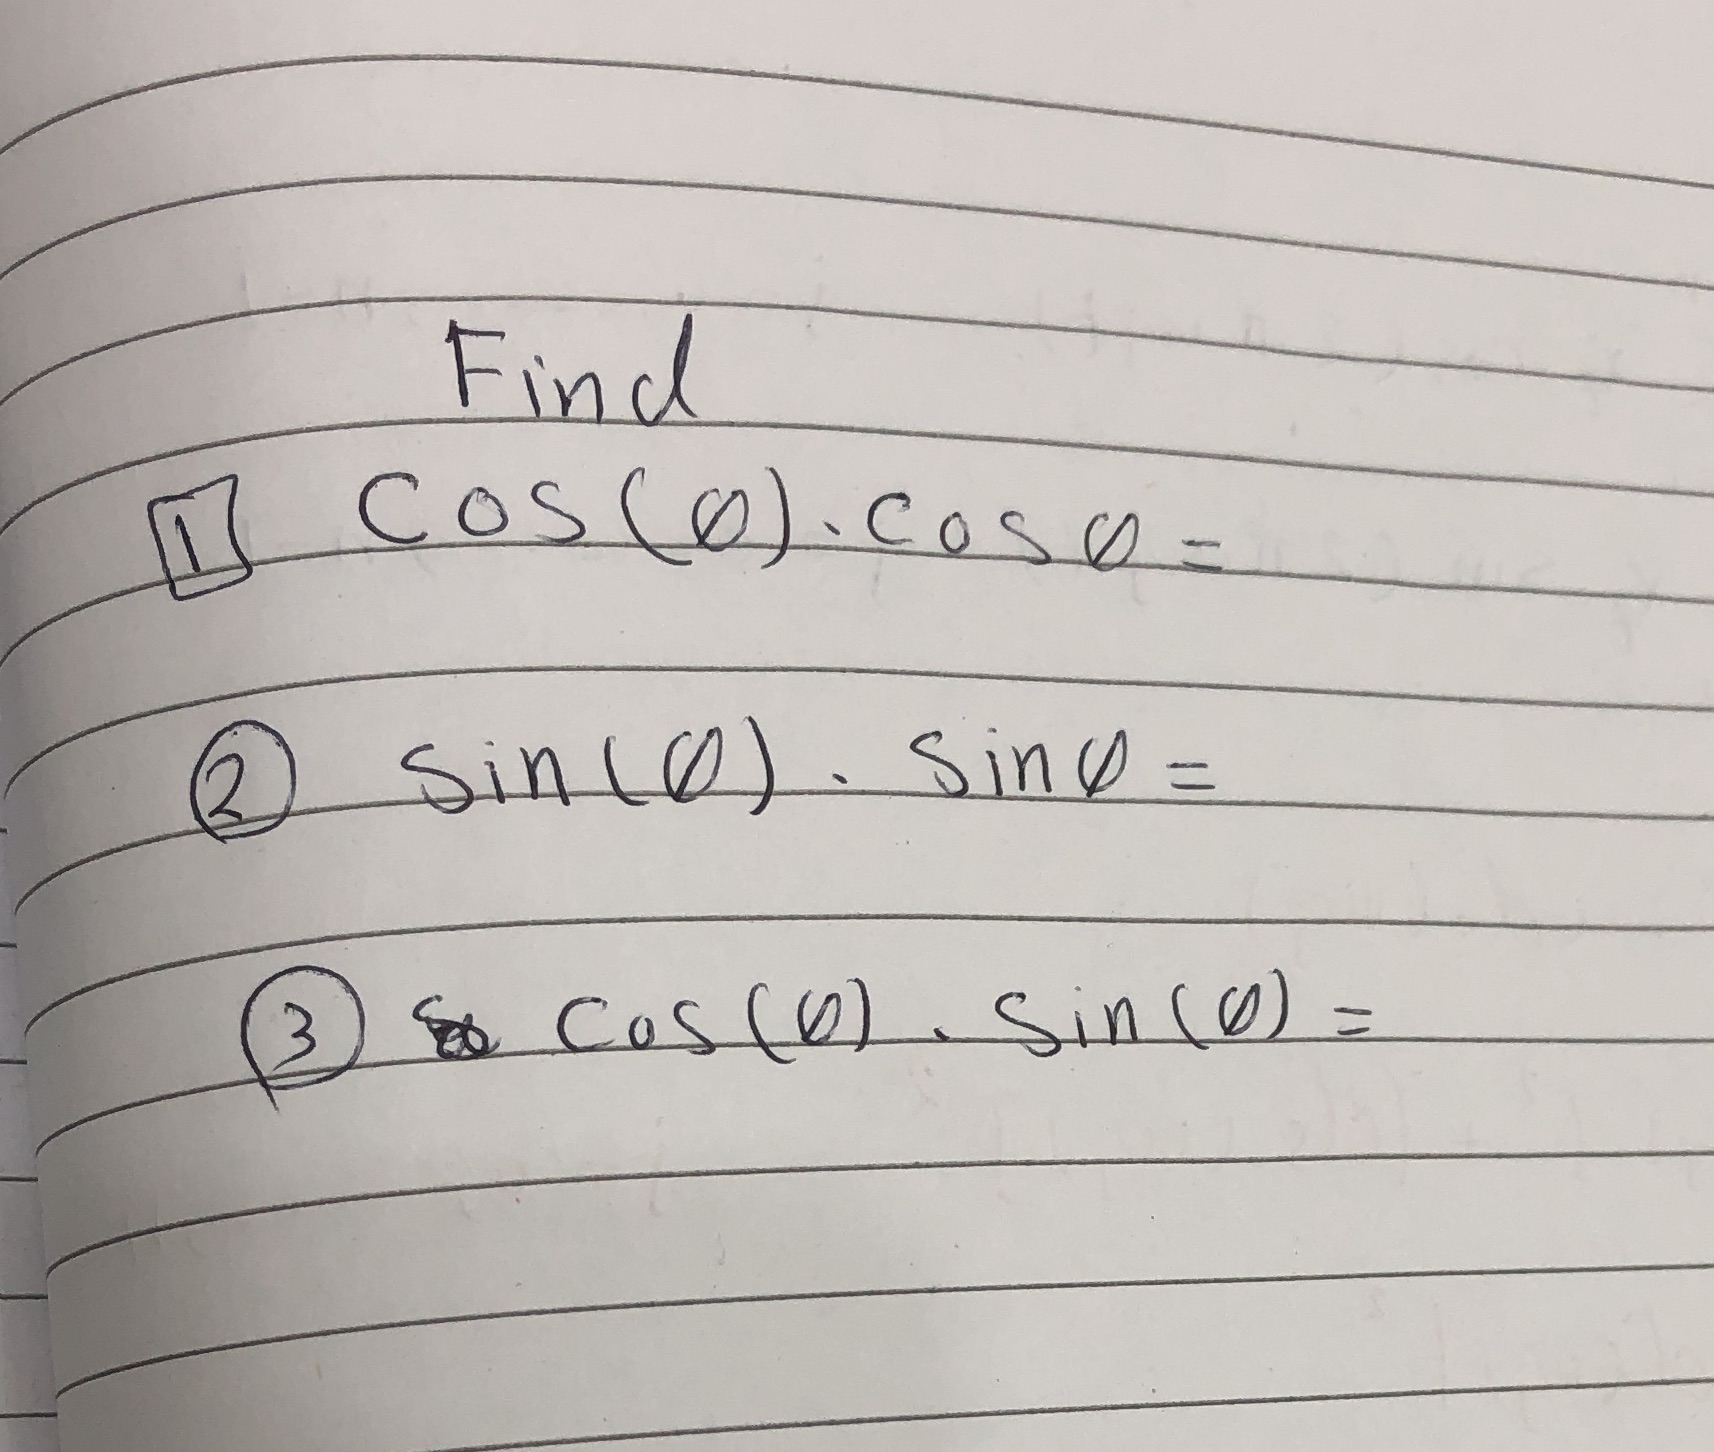 Find
1 Cos(Ø).cosØ=
2 Sin(Ø).SinØ=
3 Cos(Ø).Sin(Ø)=